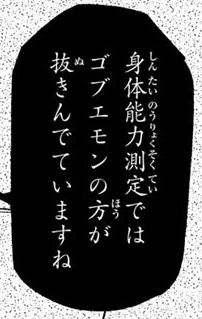 身体能力測定では
ゴブエモンの方が
抜きんでていますね